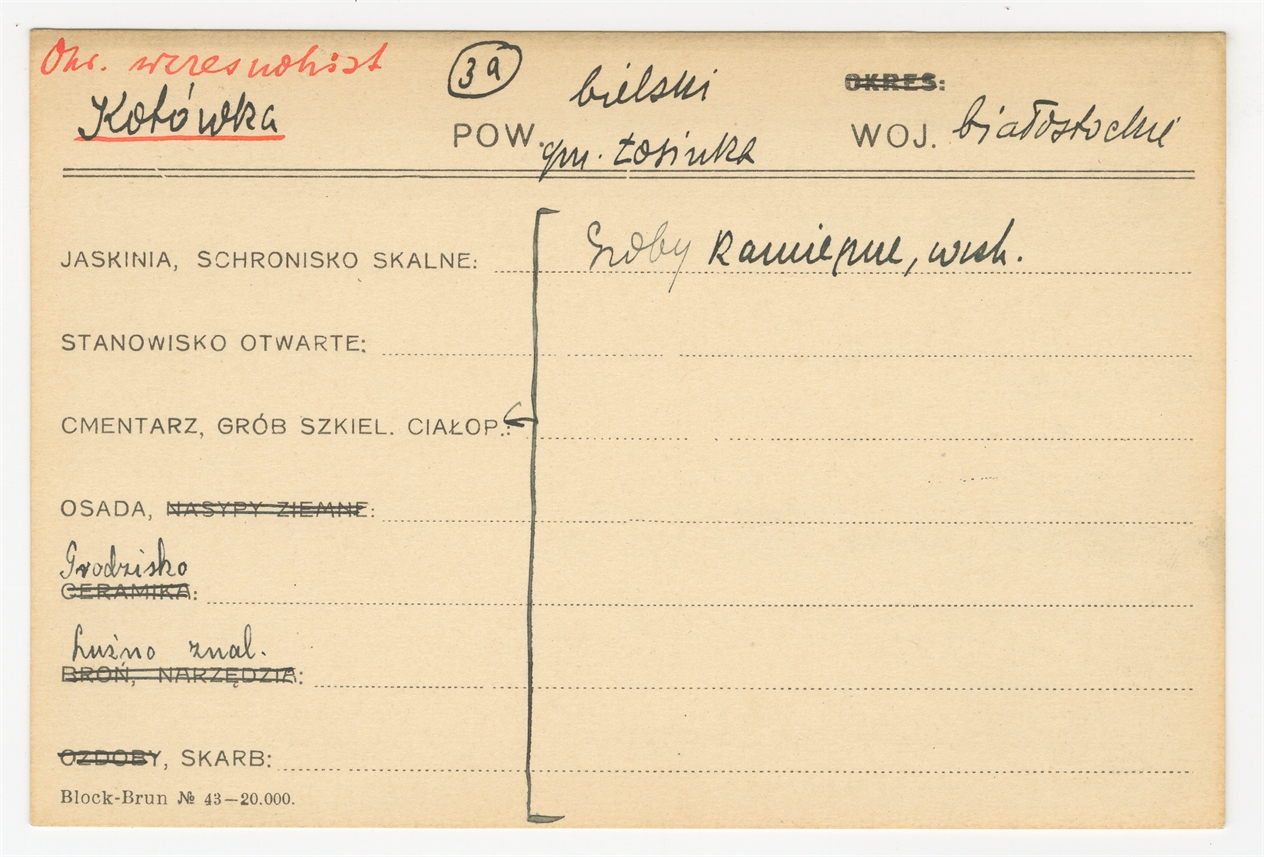 Okr. wczesnohist
3a
bielski
OKRES:
Kotówka
POW. gm. Łosinka
WOJ. białostockie
JASKINIA, SCHRONISKO SKALNE: Groby kamienne, wczh.
STANOWISKO OTWARTE:
CMENTARZ, GRÓB SZKIEL. CIAŁOP.:
OSADA, NASYPY ZIEMNE:
Grodzisko
CERAMIKA:
Luźno znal.
BROŃ, NARZĘDZIA:
OZDOBY, SKARB:
Block-Brun № 43—20.000.